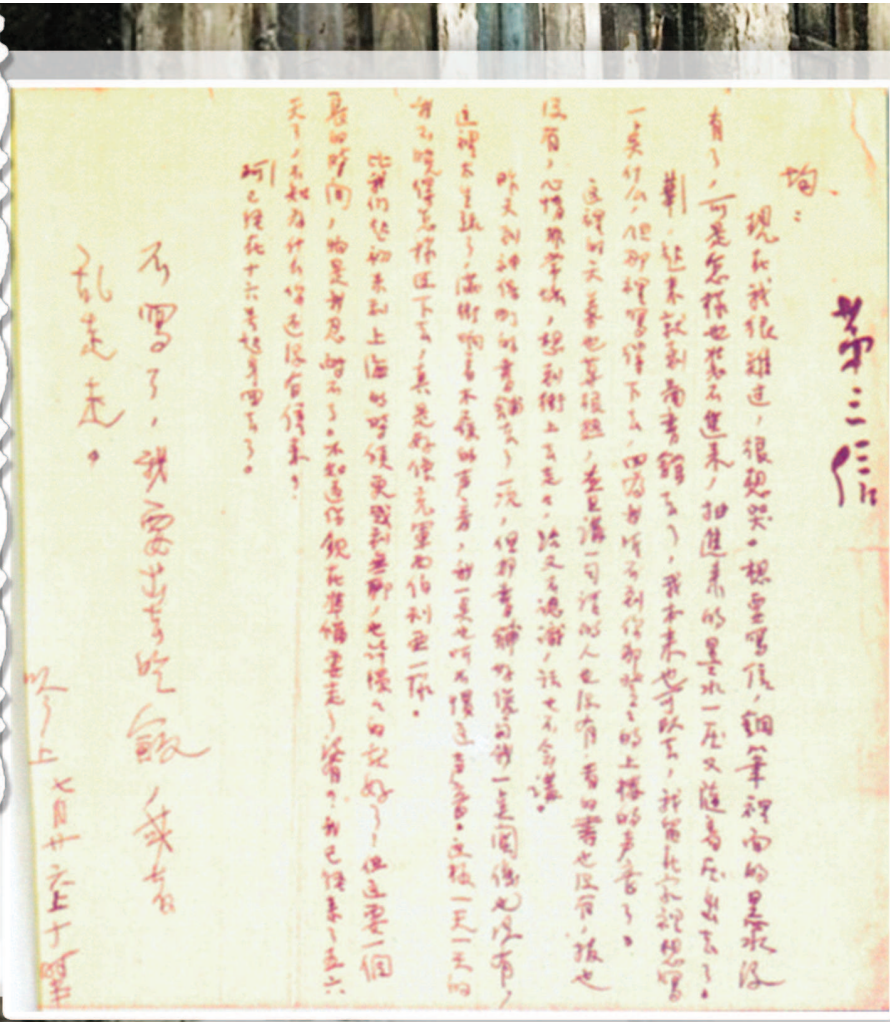 第三信
均：
现在我很难过，很想哭。想要写信，钢笔裡面的墨水没
有了，可是怎样也装不进来，抽进来的墨水一压又随着压出去了。
華起来就到图書館去了，我本来也可以去，我留在家裡想写
一点什么，但那裡写得下去，因为我听不到你那登登的上楼的声音了。
这裡的天气也算很热，並且讲一句话的人也没有，看的書也没有，报也
没有，心情非常坏，想到街上去走走，路又不認識，话也不会讲。
昨天到神保町的書铺去了一次，但那書铺好像与我一点関係也没有，
这裡太生疏了，满街响着木屐的声音，我一点也听不惯这声音。这样一天一天的
我不晓得怎样过下去，真是好像充軍西伯利亚一样。
比我们起初来到上海的时候更感到无聊，也许慢慢的就好了，但这要一個
長的时间，怕是我忍耐不了。不知道你现在准備要走了没有？我已经来了五六
天了，不知为什么你还没有信来？
珂已经在十六号起身回去了。
不寫了，我要出去吃飯，或者
乱走走。
吟上
七月廿六上十時半